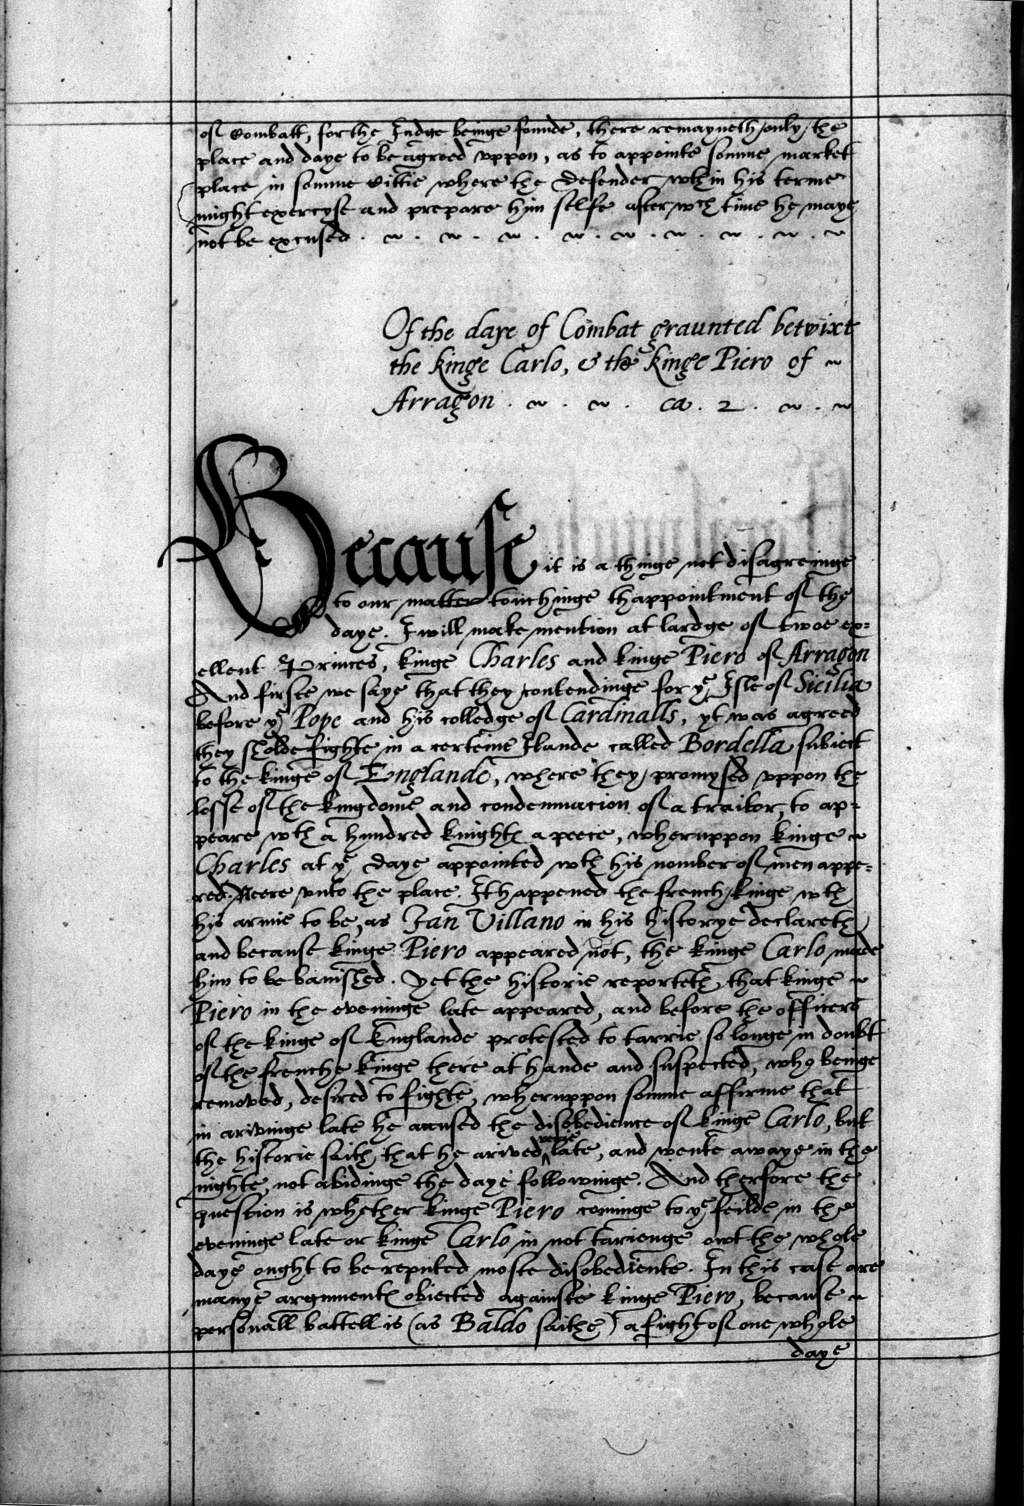 of Combatt, for the Judge beinge founde, there remayneth only the
place and daye to be agreed vppon, as to appointe somme market
place in somme Cittie where the defender wthin his terme
might exercyse and prepare him selfe after wch time he maye
not be excused.
Of the daye of Combat graunted betwixt
the kinge Carlo, & the kinge Piero of
Arragon . ca . 2 .
Because it is a thinge not disagreinge
to our matter touchinge thappointment of the
daye. I will make mention at lardge of twoe ex-
ellent Princes, kinge Charles and kinge Piero of Arragon
And firste we saye that they contendinge for ye Isle of Sicilia
before ye Pope and his colledge of Cardinalls, yt was agreed
they sholde fighte in a certeine Ilande called Bordella subiect
to the kinge of Englande, where they promysed vppon the
losse of the kingdome and condemnacion of a traitor, to ap-
peare wth a hundred knights a peece, wheruppon kinge
Charles at ye daye appointed wth his nomber of men appe-
red Neere vnto the place. It happened the french kinge wth
his armie to be, as Jan Villano in his historye declareth
and because kinge Piero appeared not, the kinge Carlo made
him to be banished. Yet the historie reporteth that kinge
Piero in the eveninge late appeared, and before the officers
of the kinge of Englande protested to tarrie so longe in doubt
of the frenche kinge there at hande and suspected, who beinge
removed, desired to fighte, wheruppon somme affirme that
in arivinge late he accused the disobedience of kinge Carlo, but
the historie saith that he arived verie late, and wente awaye in the
nighte, not abidinge the daye followinge. And therfore the
question is whether kinge Piero cominge to ye feilde in the
eveninge late or kinge Carlo in not tarienge owt the whole
daye ought to be reputed moste disobediente. In this case are
manye arguments obiected againste kinge Piero, because
personall battell is (as Baldo saithe) a fight of one whole
daye